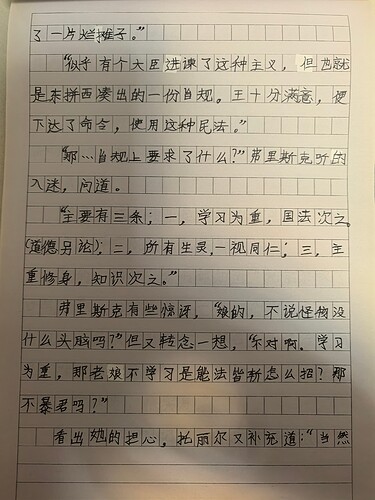 了一片烂摊子。”
“似乎有个大臣进谏了这种主义，但也就
是东拼西凑出的一份自规。王十分满意，便
下达了命令，使用这种民法。”
“那…自规上要求了什么？”弗里斯克听的
入迷，问道。
“主要有三条；一，学习为重，国法次之
(道德另法)；二，所有生灵，一视同仁；三，主
重修身，知识次之。”
弗里斯克有些惊讶，“娘的，不说怪物没
什么头脑吗？”但又转念一想，“不对啊。学习
为重，那老娘不学习是能法皆新怎么招？那
不暴君吗？”
看出她的担心，托丽尔又补充道：“当然